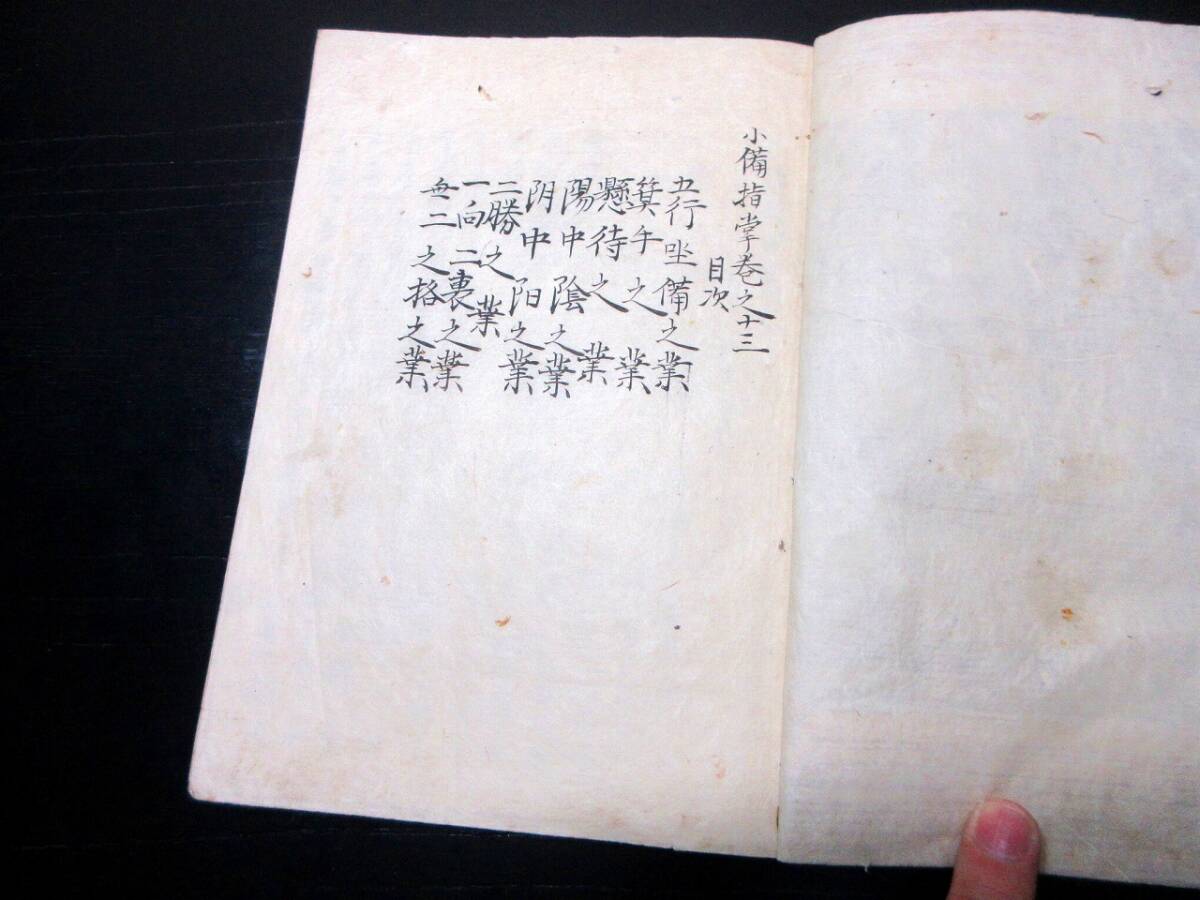 小備指掌巻之十三
目次
五行坐備之業
箕午之業
懸待之業
陽中陰之業
阴中阳之業
二勝之業
一向二裏之業
無二之格之業